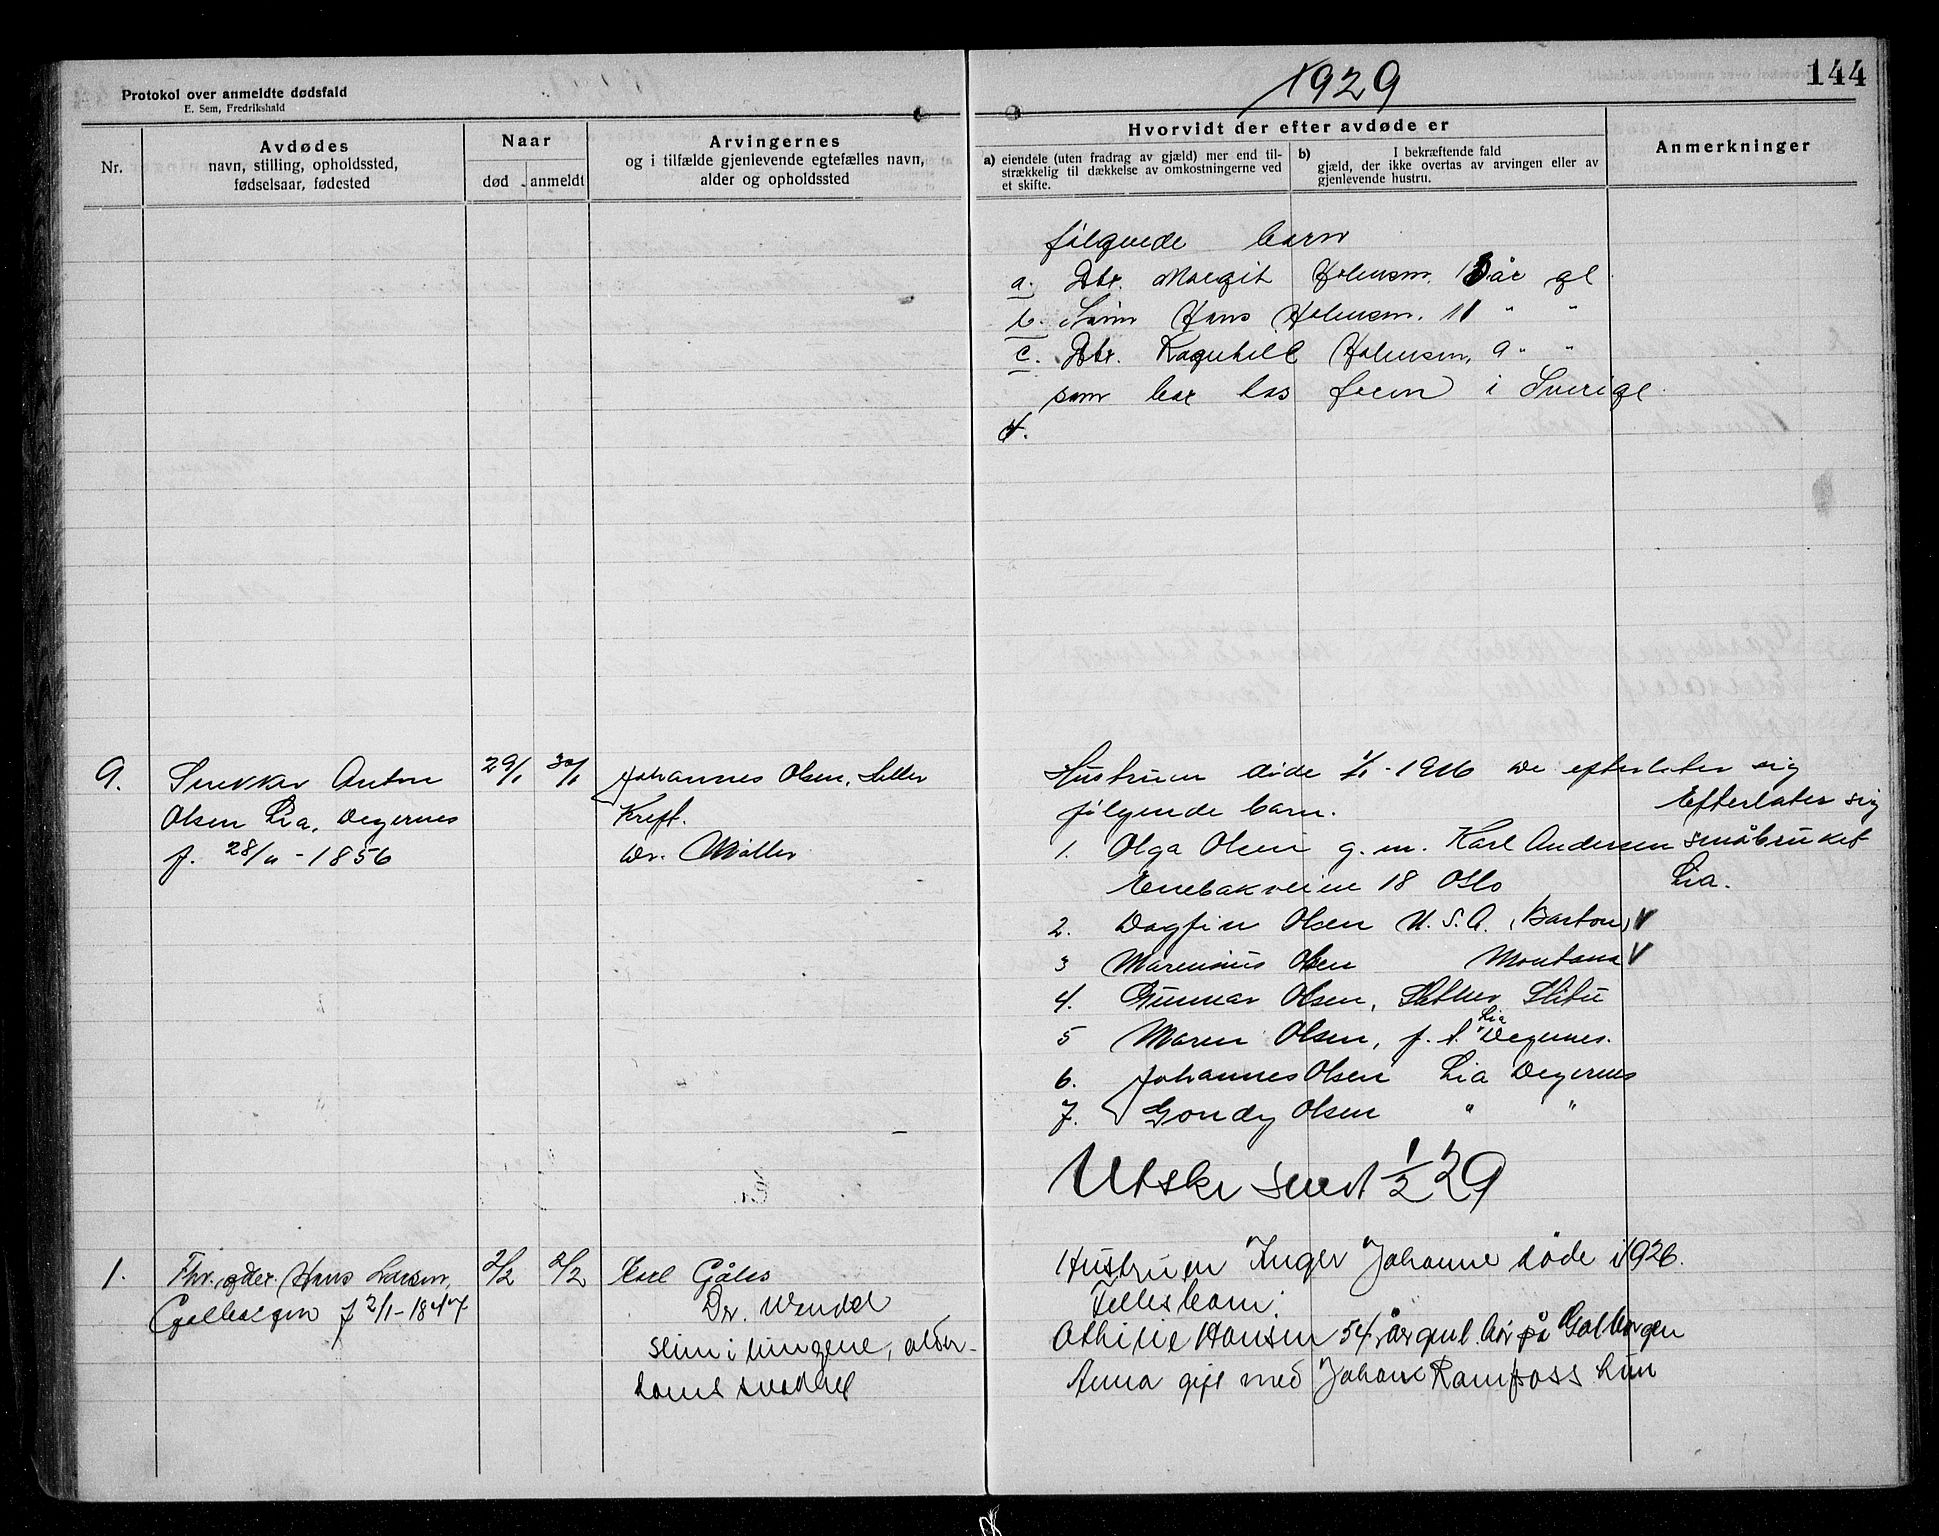 1929
144
Protokol over anmeldte dødsfald
E. Sem, Fredrikshald
Nr.
Avdødes
navn, stilling, opholdssted,
fødselsaar, fødested
Naar
død
anmeldt
Arvingernes
og i tilfælde gjenlevende egtefælles navn,
alder og opholdssted
Hvorvidt der efter avdøde er
a) eiendele (uten fradrag av gjæld) mer end til-
strækkelig til dækkelse av omkostningerne ved
et skifte.
b) I bekræftende fald
gjæld, der ikke overtas av arvingen eller av
gjenlevende hustru.
Anmerkninger
følgende barn
a. Dtr. Margit Johansen, 13 år gl
b. Sønn Hans Johansen. 11 " "
c. Dtr. Ragnhild Johansen, 9 " "
som bor hos faren i Sverige
d.
9.
Snekker Anton
Olsen Lia, Degernes
f. 28/11 - 1856
29/1
30/1
Johannes Olsen,
Kreft.
Dr. Møller
Hustruen døde 1/1 - 1916 De efterlater sig
følgende barn.
1. Olga Olsen g. m. Karl Andersen
Enebakveien 18 Oslo
2. Dagfin Olsen U. S. A. (Barton) V
3 Marenius Olsen Montana V
4. Gunnar Olsen,
5 Maren Olsen, f. s. Lia Degernes.
6. Johannes Olsen Lia Degernes
7. Gondy Olsen " "
Efterlater sig
småbruket
Lia.
Utskr sendt 1/2 29
1.
Fhv. gdr. Hans Larsen
f 2/1-1847
2/2
2/2
Karl
Dr. Wendel
alder-
Hustruen Inger Johanne døde i 1926.
Fellesbarn:
Othilie Hansen 54 år gml. bor på Galborgen
Anna gift med Johan Ramfoss hun